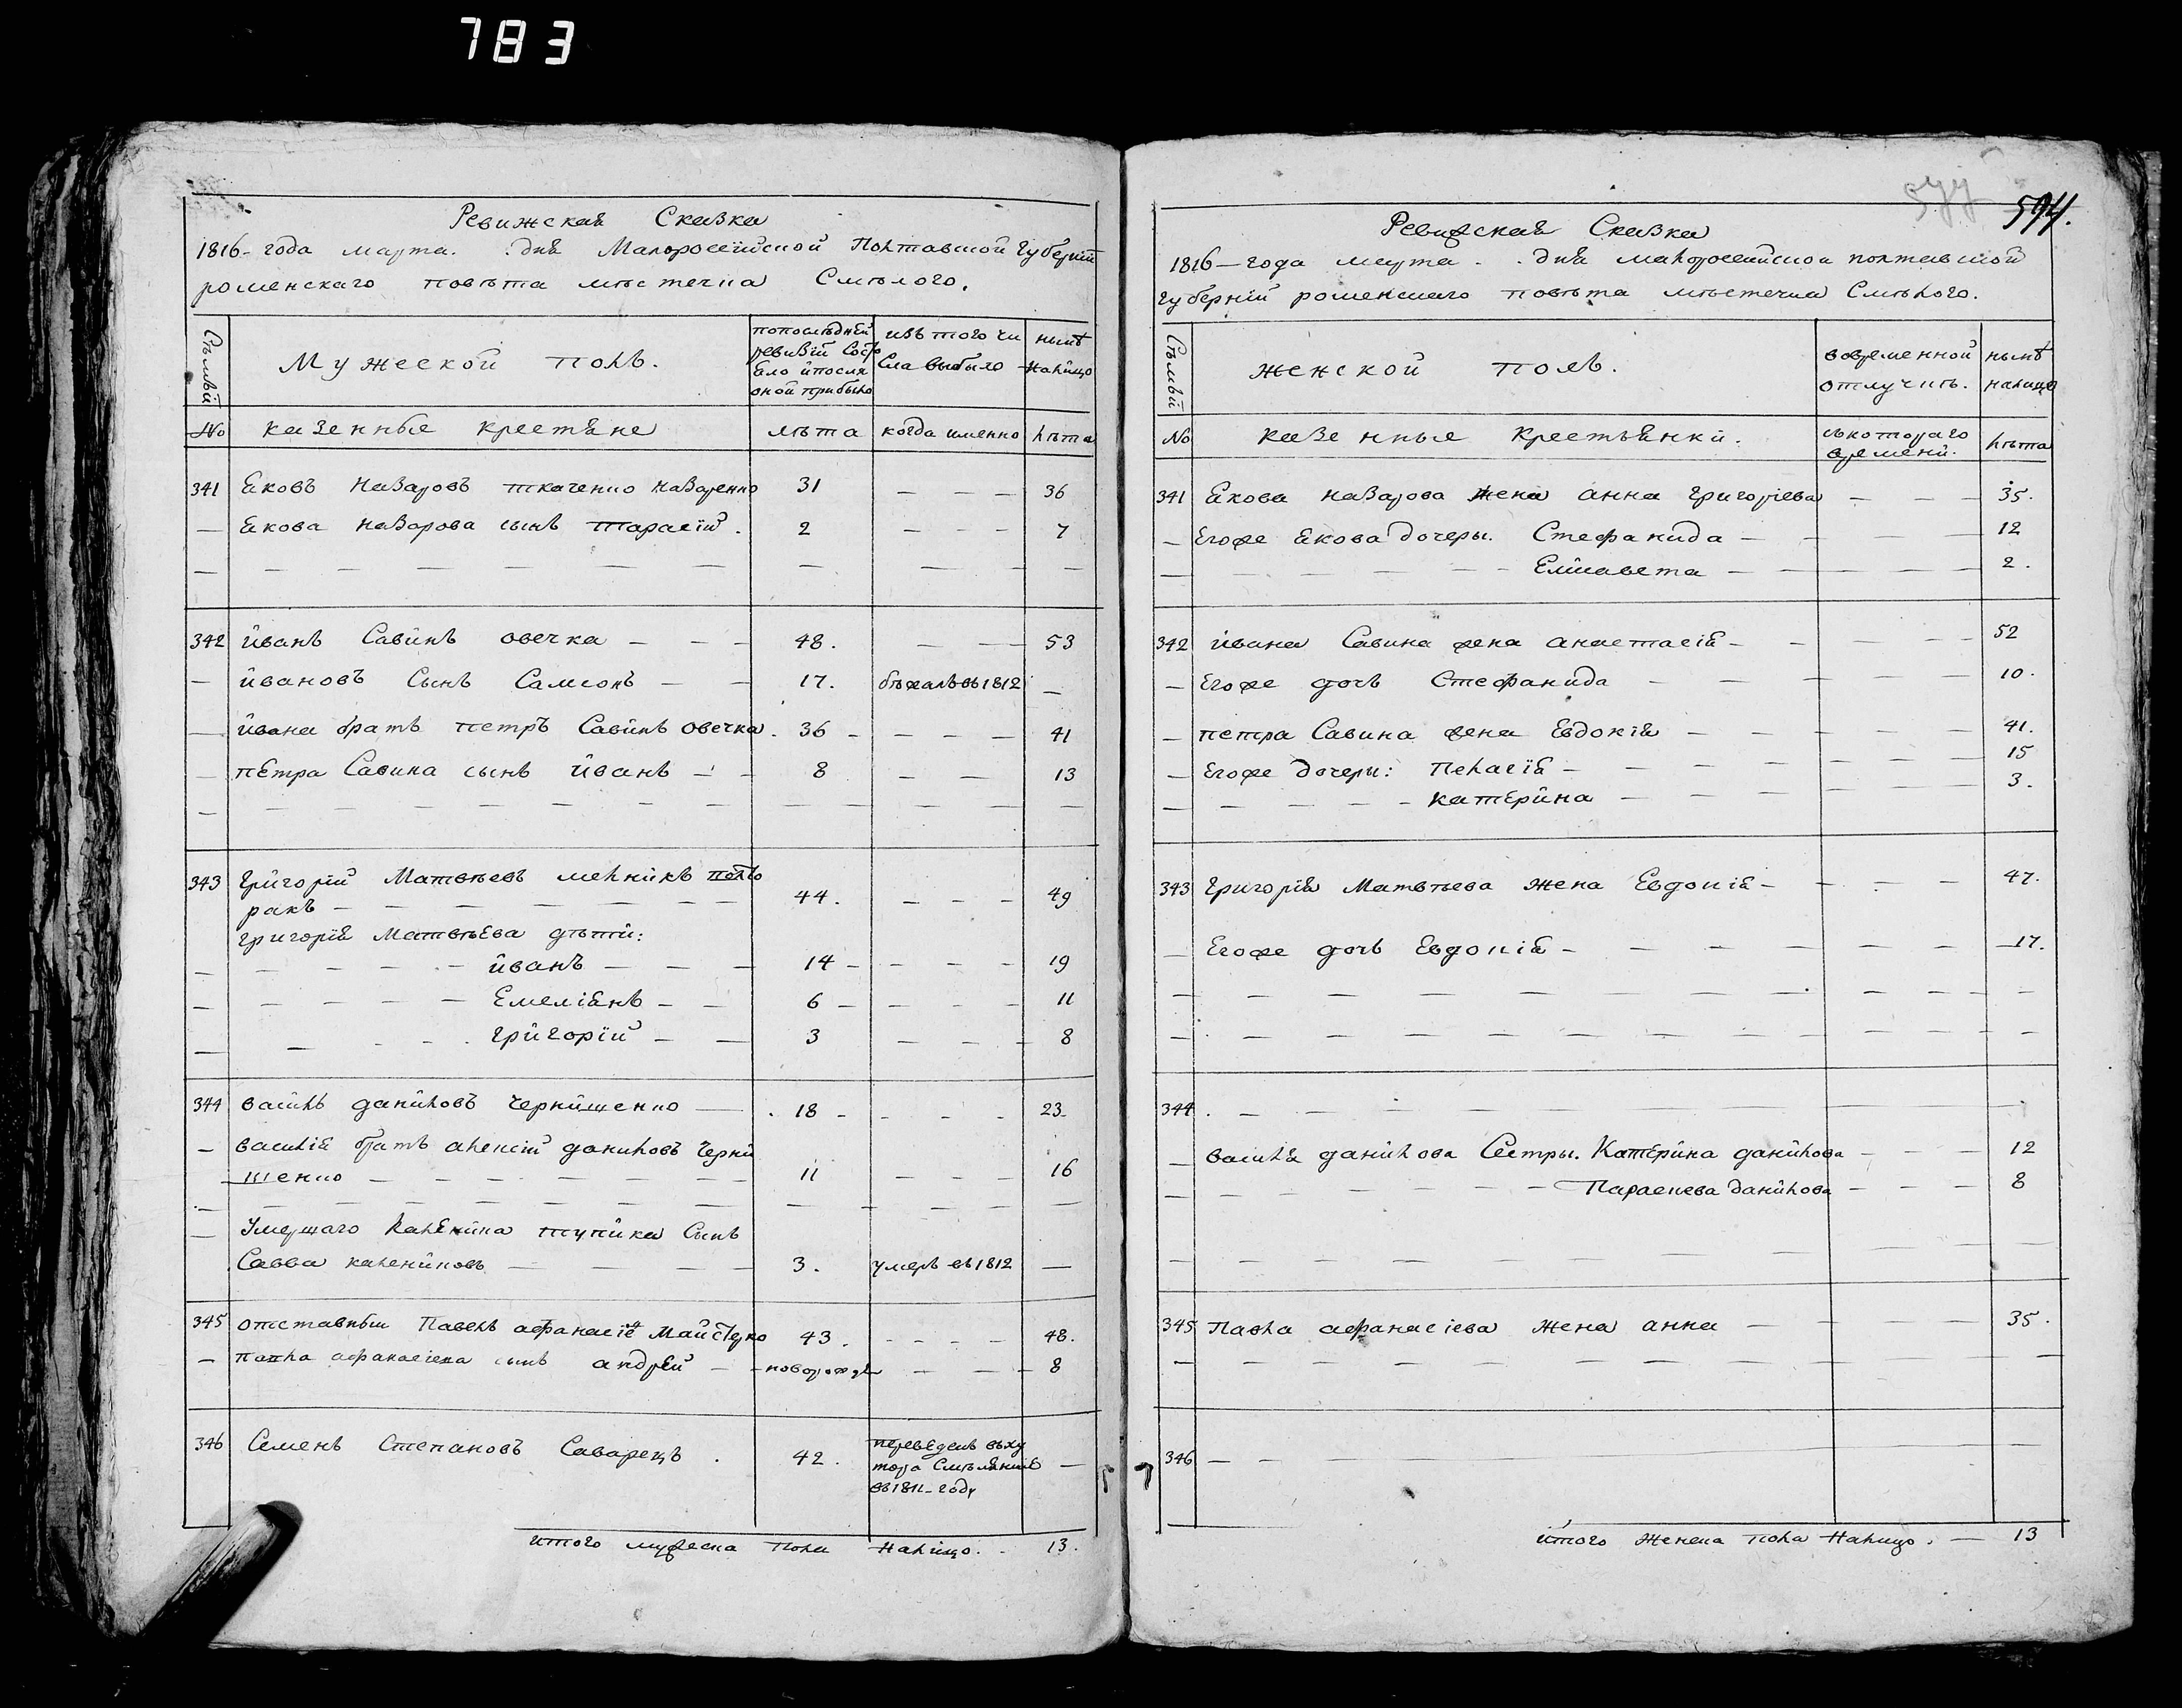 783
Ревижская Сказка
1816- года марта. . дня Малоросейской Полтавской Губерніи
роменского повѣта мѣстечка Смѣлого.
Сѣмьи
Мужеской полъ.
попослѣдней
ревизіи состо
яло ипосля
оной прибыло
изъ того чи
сла выбыло
нынѣ
налицо
№ казенные крестяне лѣта когда именно лѣта
341 Яковъ Назаровъ ткаченко назаренко 31 — — — 36
— Якова Назарова сынъ тарасій. 2 — — — 7
342 йванъ Савинъ овечка — — — 48. — — — 53
— йвановъ Сынъ Самсонъ — — 17. бѣжалъ въ 1812 —
— йвана братъ петръ Савинъ овечка. 36 — — — — 41
— петра Савина сынъ йванъ — — 8 — — 13
343 григорій Матвѣевъ мелникъ полто
ракъ — — — — — — 44. — — — 49
григорія Матвѣева дѣти:
— — — — йванъ — — — 14 — — — — 19
— — — — Емеліянъ — — 6 — — — — 11
— — — — григорій — — 3 — — — 8
344 василь даниловъ Чернищенко — . 18 — — — — 23
— василія братъ алексій даниловъ Черни
щенко — — — — — — 11 — — — 16
— Умершаго Каленика тупика Сынъ
Савва калениковъ — — — — 3. умеръ въ 1812 —
345 отставный Павелъ афанасіе Майстренко 43. — — — — 48.
— павла афанасіева сынъ андрей — — новорожде — — — 8
346 Семенъ Степановъ Саварецъ . 42. переведенъ въ ху
тора Смѣлянские —
въ 1811 году
итого мужеска пола налицо. . 13.
577 594.
Ревижская Сказка
1816 — года марта . . дня малоросейской полтавской
губерніи роменскаго повѣта мѣстечка Смѣлого.
Сѣмьи
женской полъ.
вовременной
отлучкѣ.
нынѣ
налицо
№ казенные крестьянки. съкотораго
времени. лѣта
341 Якова назарова жена анна григоріева — — — 35.
— Егоже Якова дочеры. Стефанида — — — — 12
— — — — — — Елисавета — — — — — 2.
342 йвана Савина жена анастасія — — — — — 52
— Егоже дочь Стефанида — — — — — 10.
— петра Савина жена Евдокія — — — — — 41.
— Егоже дочеры: Пелагія — — — — — — — 15
— — — — — катерина — — — — — — 3.
343 григорія Матвѣева жена Евдокія — — — — 47.
— Егоже дочь Евдокія — — — — — — — 17.
344 . — — — — — — — — —
— василя данилова Сестры. Катерина данилова — — — 12
— — — — — — — Параскева данилова — — — 8
345 Павла афанасіева жена анна — — — 35.
346 — — — — — —
итого женска пола налицо. — 13